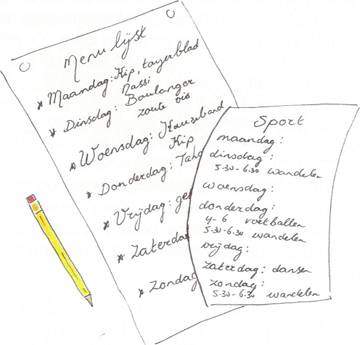 Menu lijst
* Maandag: Kip, tayerblad
Nassi
* Dinsdag: Boulanger
zoute vis
* Woensdag: Kouseband
Kip
* Donderdag:
* Vrijdag:
* Zaterdag
* Zondag
Sport
maandag:
dinsdag:
5.30-6.30 wandelen
woensdag:
donderdag:
4-6 voetballen
5.30-6.30 wandelen
vrijdag:
zaterdag: dansen
zondag:
5.30-6.30 wandelen